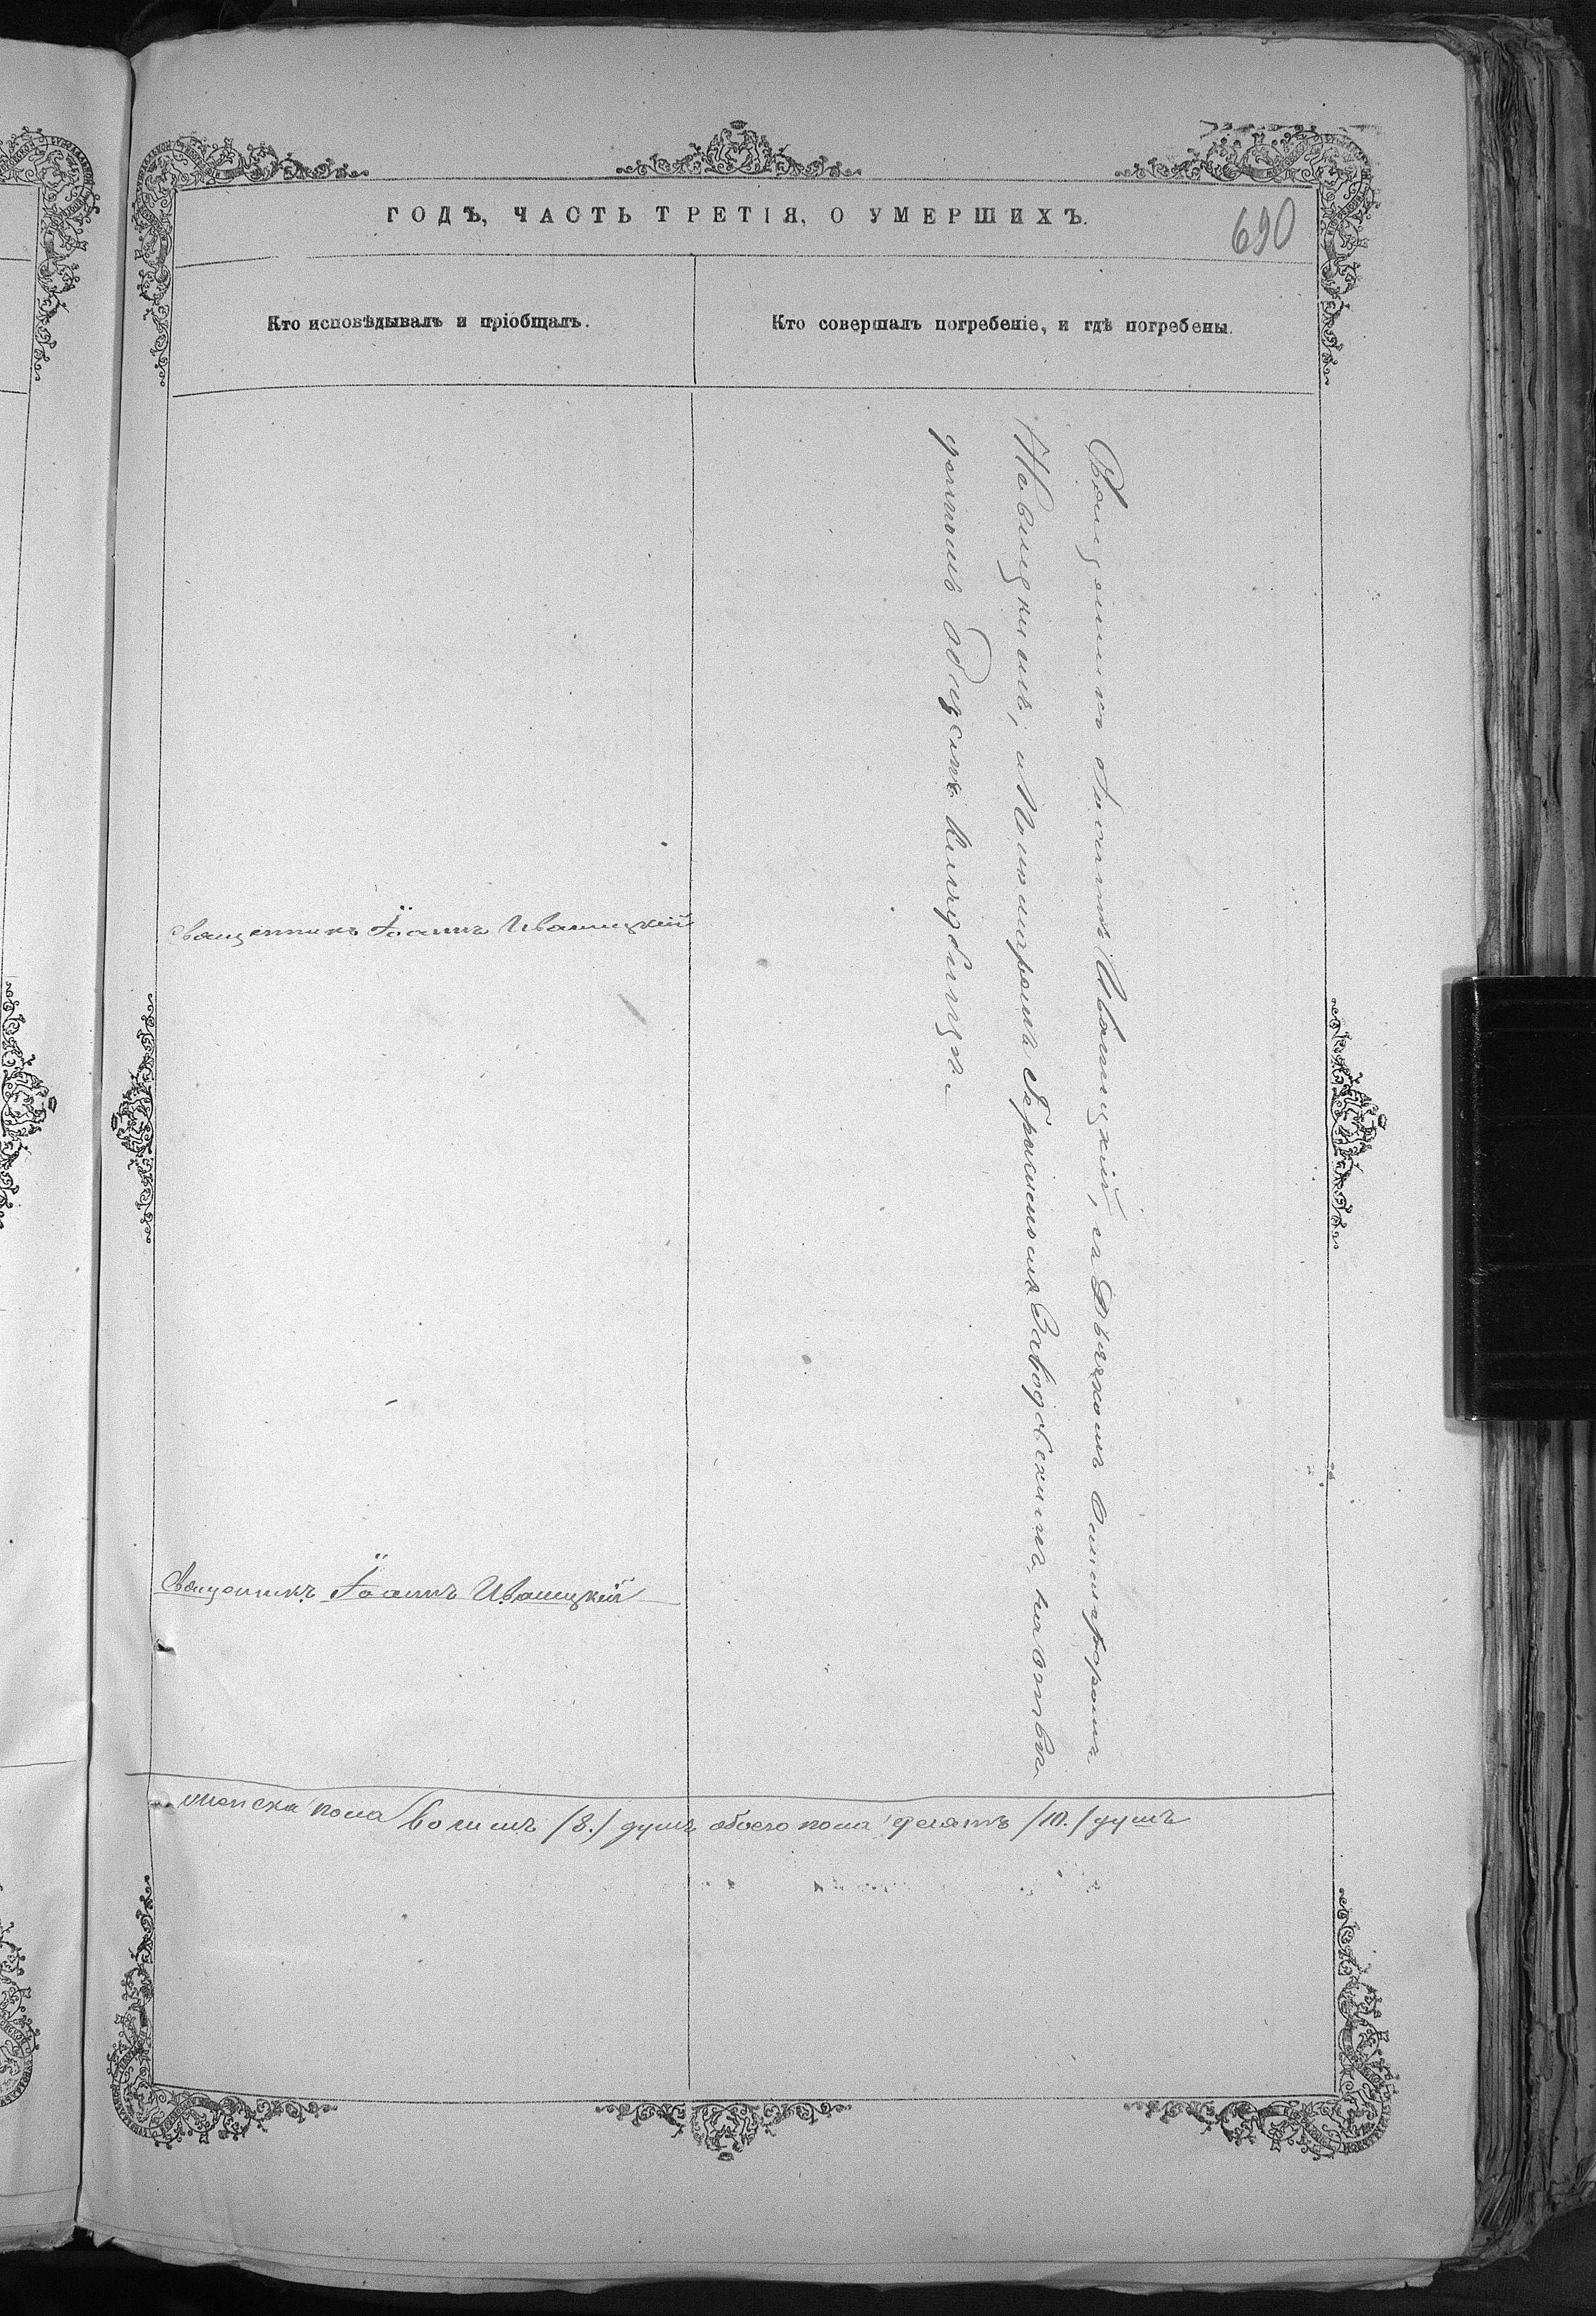 ГОДЪ, ЧАСТЬ ТРЕТІЯ, О УМЕРШИХЪ.
690
Кто исповѣдывалъ и пріобщалъ.
Кто совершалъ погребеніе, и гдѣ погребены.
Священникъ Іоаннъ Ивашицкій
Священникъ Іоаннъ Ивашицкій
Священникъ Іоаннъ Ивашицкій, съ Дьячкомъ
и Пономаромъ Герасимомъ Заводовскимъ на отве
денномъ общемъ кладбищѣ.
женска пола восемь /8./ душъ обоего пола десять /10./ душъ